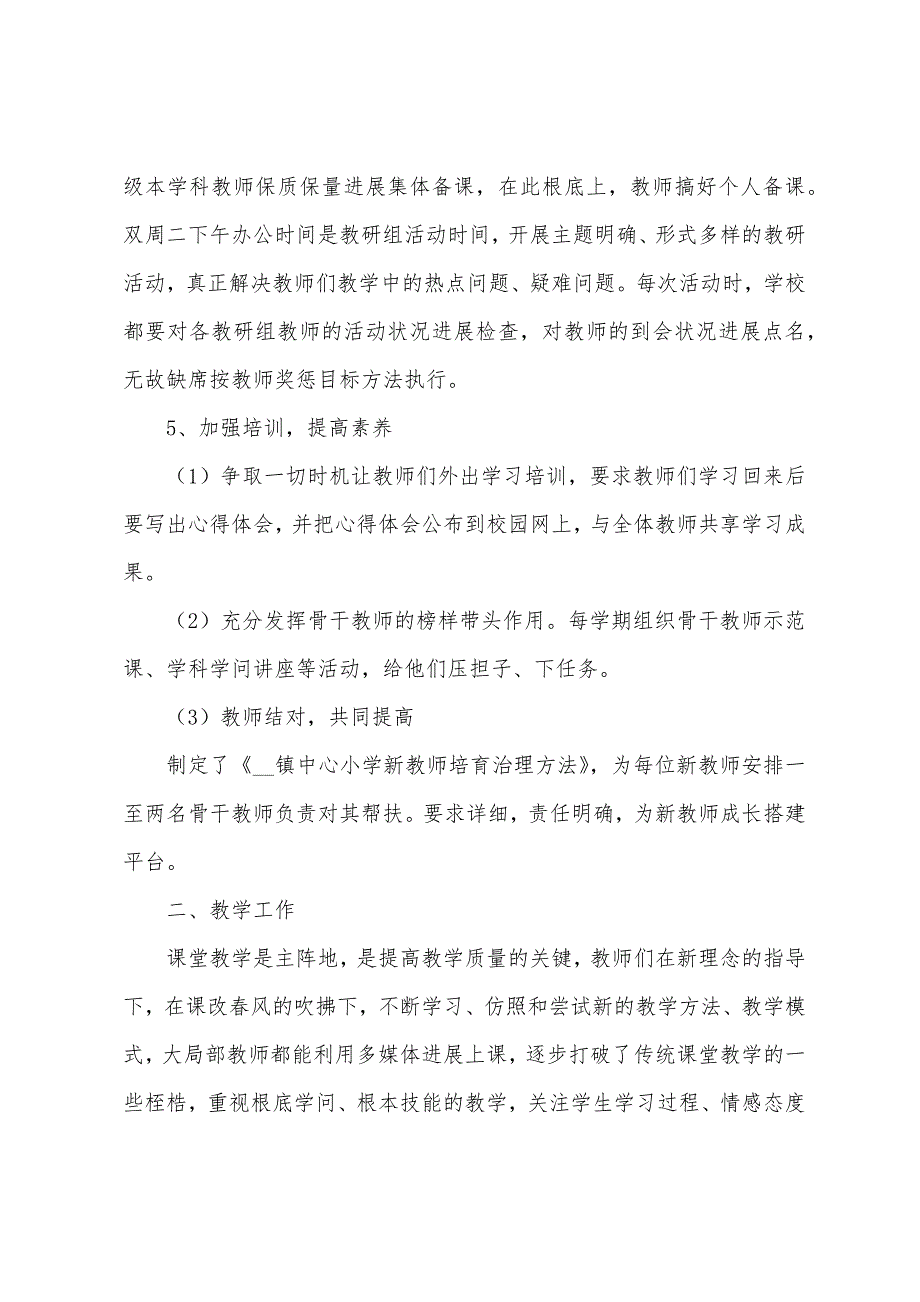 级本学科教师保质保量进展集体备课，在此根底上，教师搞好个人备课。
双周二下午办公时间是教研组活动时间，开展主题明确、形式多样的教研
活动，真正解决教师们教学中的热点问题、疑难问题。每次活动时，学校
都要对各教研组教师的活动状况进展检查，对教师的到会状况进展点名，
无故缺席按教师奖惩目标方法执行。
5、加强培训，提高素养
（1）争取一切时机让教师们外出学习培训，要求教师们学习回来后
要写出心得体会，并把心得体会公布到校园网上，与全体教师共享学习成
果。
（2）充分发挥骨干教师的榜样带头作用。每学期组织骨干教师示范
课、学科学问讲座等活动，给他们压担子、下任务。
（3）教师结对，共同提高
制定了《__镇中心小学新教师培育治理方法》，为每位新教师安排一
至两名骨干教师负责对其帮扶。要求详细，责任明确，为新教师成长搭建
平台。
二、教学工作
课堂教学是主阵地，是提高教学质量的关键，教师们在新理念的指导
下，在课改春风的吹拂下，不断学习、仿照和尝试新的教学方法、教学模
式，大局部教师都能利用多媒体进展上课，逐步打破了传统课堂教学的一
些桎梏，重视根底学问、根本技能的教学，关注学生学习过程、情感态度